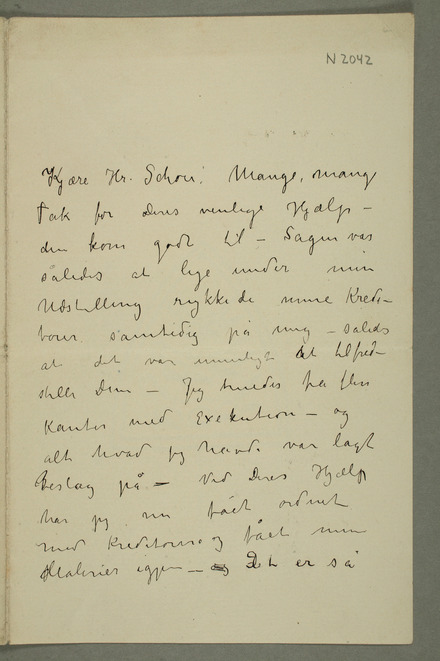 N 2042
Kjære Hr. Schou! Mange, mang
Tak for Deres venlige Hjælp –
den kom godt til – Sagen var
således at lige under min
Udstilling rykkede mine Kredi-
torer samtidig på mig – således
at det var umuligt at tilfred-
stille Dem – Jeg truedes fra flere
Kanter med Exekution – og
alt hvad jeg havde var lagt
Beslag på – Ved Deres Hjælp
har jeg nu fået ordnet
med Kreditorerne og fået mine
Malerier igjen – Det er så